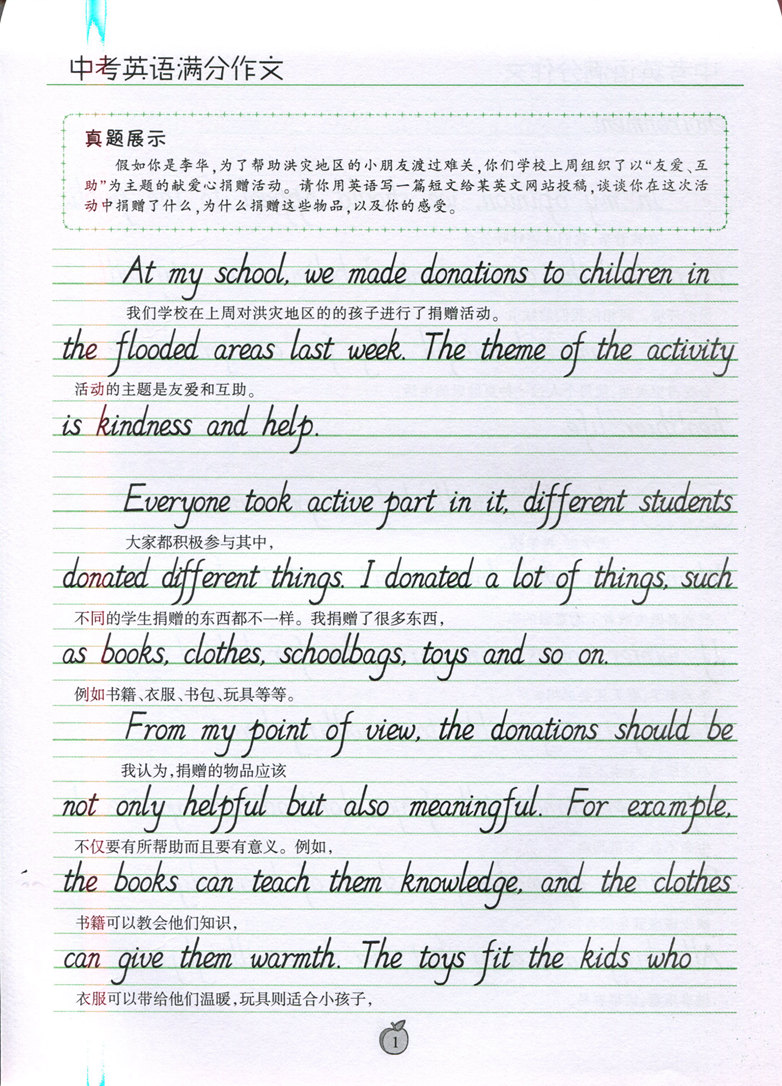 中考英语满分作文
真题展示
假如你是李华,为了帮助洪灾地区的小朋友渡过难关,你们学校上周组织了以“友爱、互
助”为主题的献爱心捐赠活动。请你用英语写一篇短文给某英文网站投稿,谈谈你在这次活
动中捐赠了什么,为什么捐赠这些物品,以及你的感受。
At my school, we made donations to children in
我们学校在上周对洪灾地区的的孩子进行了捐赠活动。
the flooded areas last week. The theme of the activity
活动的主题是友爱和互助。
is kindness and help.
Everyone took active part in it, different students
大家都积极参与其中,
donated different things. I donated a lot of things, such
不同的学生捐赠的东西都不一样。我捐赠了很多东西,
as books, clothes, schoolbags, toys and so on.
例如书籍、衣服、书包、玩具等等。
From my point of view, the donations should be
我认为,捐赠的物品应该
not only helpful but also meaningful. For example,
不仅要有所帮助而且要有意义。例如,
the books can teach them knowledge, and the clothes
书籍可以教会他们知识,
can give them warmth. The toys fit the kids who
衣服可以带给他们温暖,玩具则适合小孩子,
1